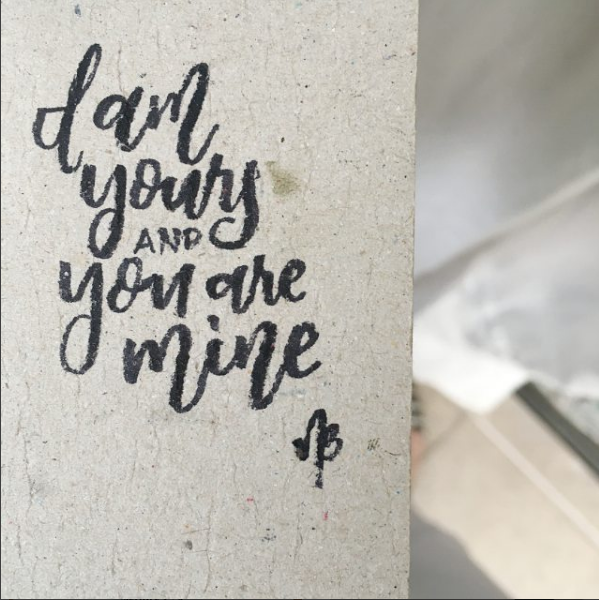 I am
yours
AND
you are
mine
NB